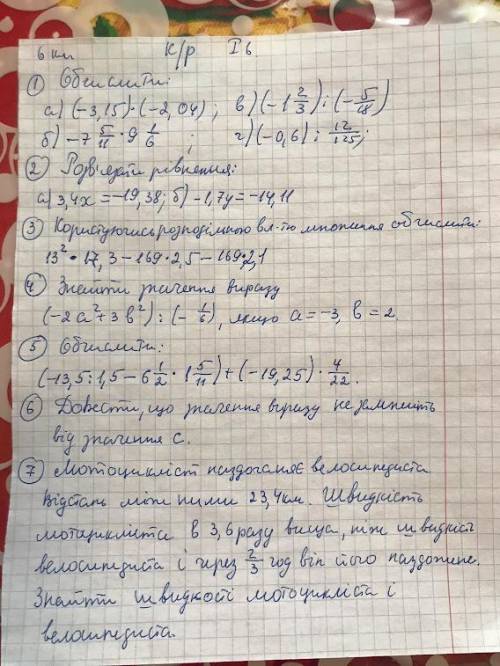 6 кл К/р І в.
① Обчислити:
а) (-3,15)·(-2,04); в) (-1 2/3) : (-5/18)
б) -7 5/11 · 9 1/6 ; г) (-0,6) : 12/125;
② Розв'язати рівняння:
а) 3,4x = -19,38; б) -1,7y = -14,11
③ Користуючись розподільною вл-тю множення обчислити:
13² · 17,3 - 169 · 2,5 - 169·2,1
④ Знайти значення виразу
(-2a² + 3b²) : (-1/6), якщо a = -3, b = 2.
⑤ Обчислити:
(-13,5 : 1,5 - 6 1/2 · 1 5/11) + (-19,25) · 4/22.
⑥ Довести, що значення виразу не залежить
від значення c.
⑦ Мотоцикліст наздоганяє велосипедиста
Відстань між ними 23,4км. Швидкість
мотоцикліста в 3,6 разу вища, ніж швидкість
велосипедиста і через 2/3 год він його наздожене.
Знайти швидкості мотоцикліста і
велосипедиста.